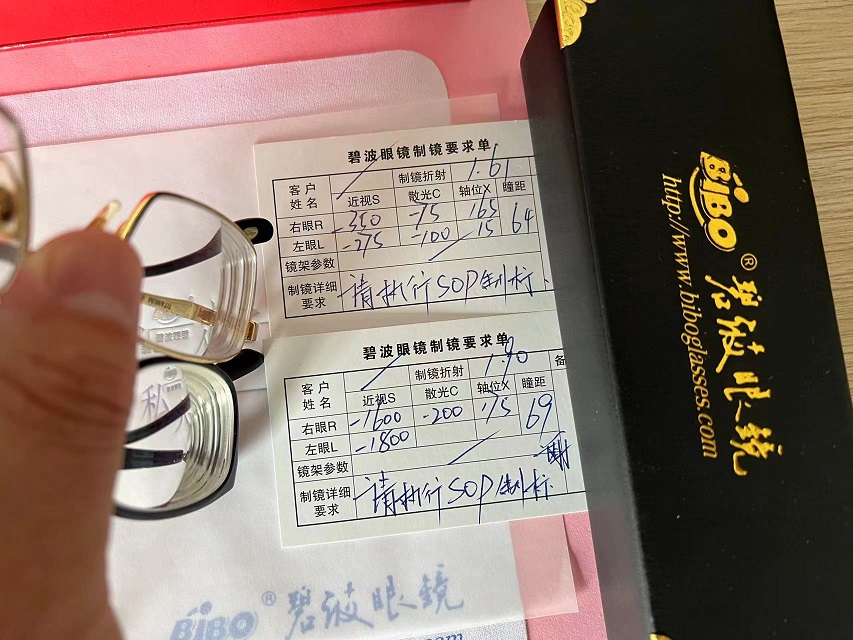 碧波眼镜制镜要求单
客户姓名 制镜折射 1.61
近视S 散光C 轴位X 瞳距
右眼R -350 -75 165 64
左眼L -275 -100 15
镜架参数
制镜详细要求 请执行SOP制标
碧波眼镜制镜要求单
客户姓名 制镜折射 1.90 备
近视S 散光C 轴位X 瞳距
右眼R -1600 -200 175 69
左眼L -1800
镜架参数
谢
制镜详细要求 请执行SOP制标
BIBO® 碧波眼镜
http://www.biboglasses.com
BIBO® 碧波眼镜
.com
碧波眼镜